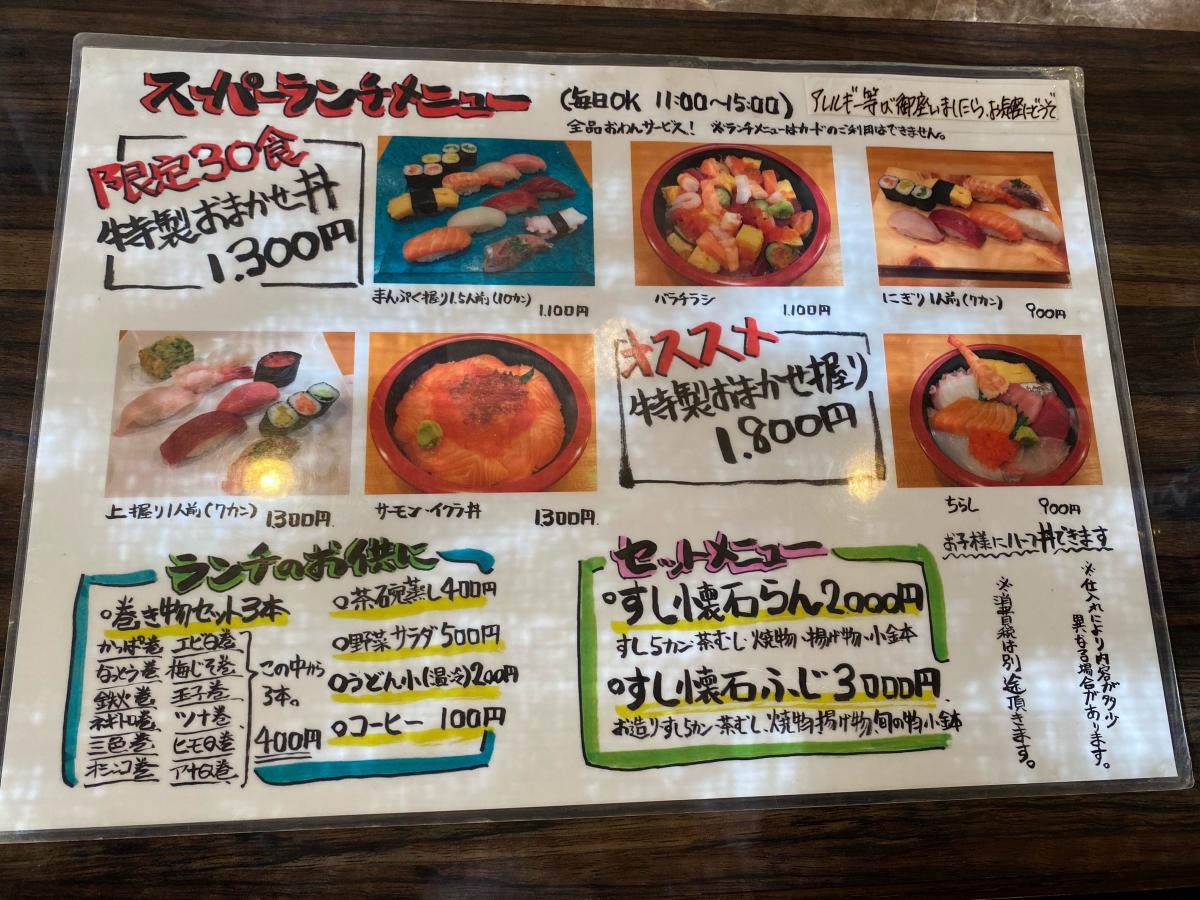 スーパーランチメニュー
(毎日OK 11:00~15:00)
アレルギー等が御座いましたら、お気軽にどうぞ
全品おわんサービス! ※ランチメニューはカードのご利用はできません。
限定30食
特製おまかせ丼
1.300円
まんぷく握り1.5人前(10カン)
1.100円
バラチラシ
1.100円
にぎり1人前(7カン)
900円
上握り1人前(7カン) 1300円
サーモン・イクラ丼 1300円
オススメ
特製おまかせ握り
1.800円
ちらし 900円
お子様にハーフ丼できます
ランチのお供に
○巻き物セット3本
かっぱ巻 エビQ巻
なっとう巻 梅じそ巻
鉄火巻 玉子巻
ネギトロ巻 ツナ巻
三色巻 ヒモQ巻
オシンコ巻 アナQ巻
この中から
3本。
400円
○茶碗蒸し400円
○野菜サラダ500円
○うどん小(温・冷)200円
○コーヒー 100円
セットメニュー
○すし懐石らん2000円
すし5カン・茶むし・焼物・揚げ物・小鉢
○すし懐石ふじ3000円
お造り・すし5カン・茶むし・焼物・揚げ物・旬の物・小鉢
※仕入れにより内容が多少
異なる場合があります。
※消費税は別途頂きます。